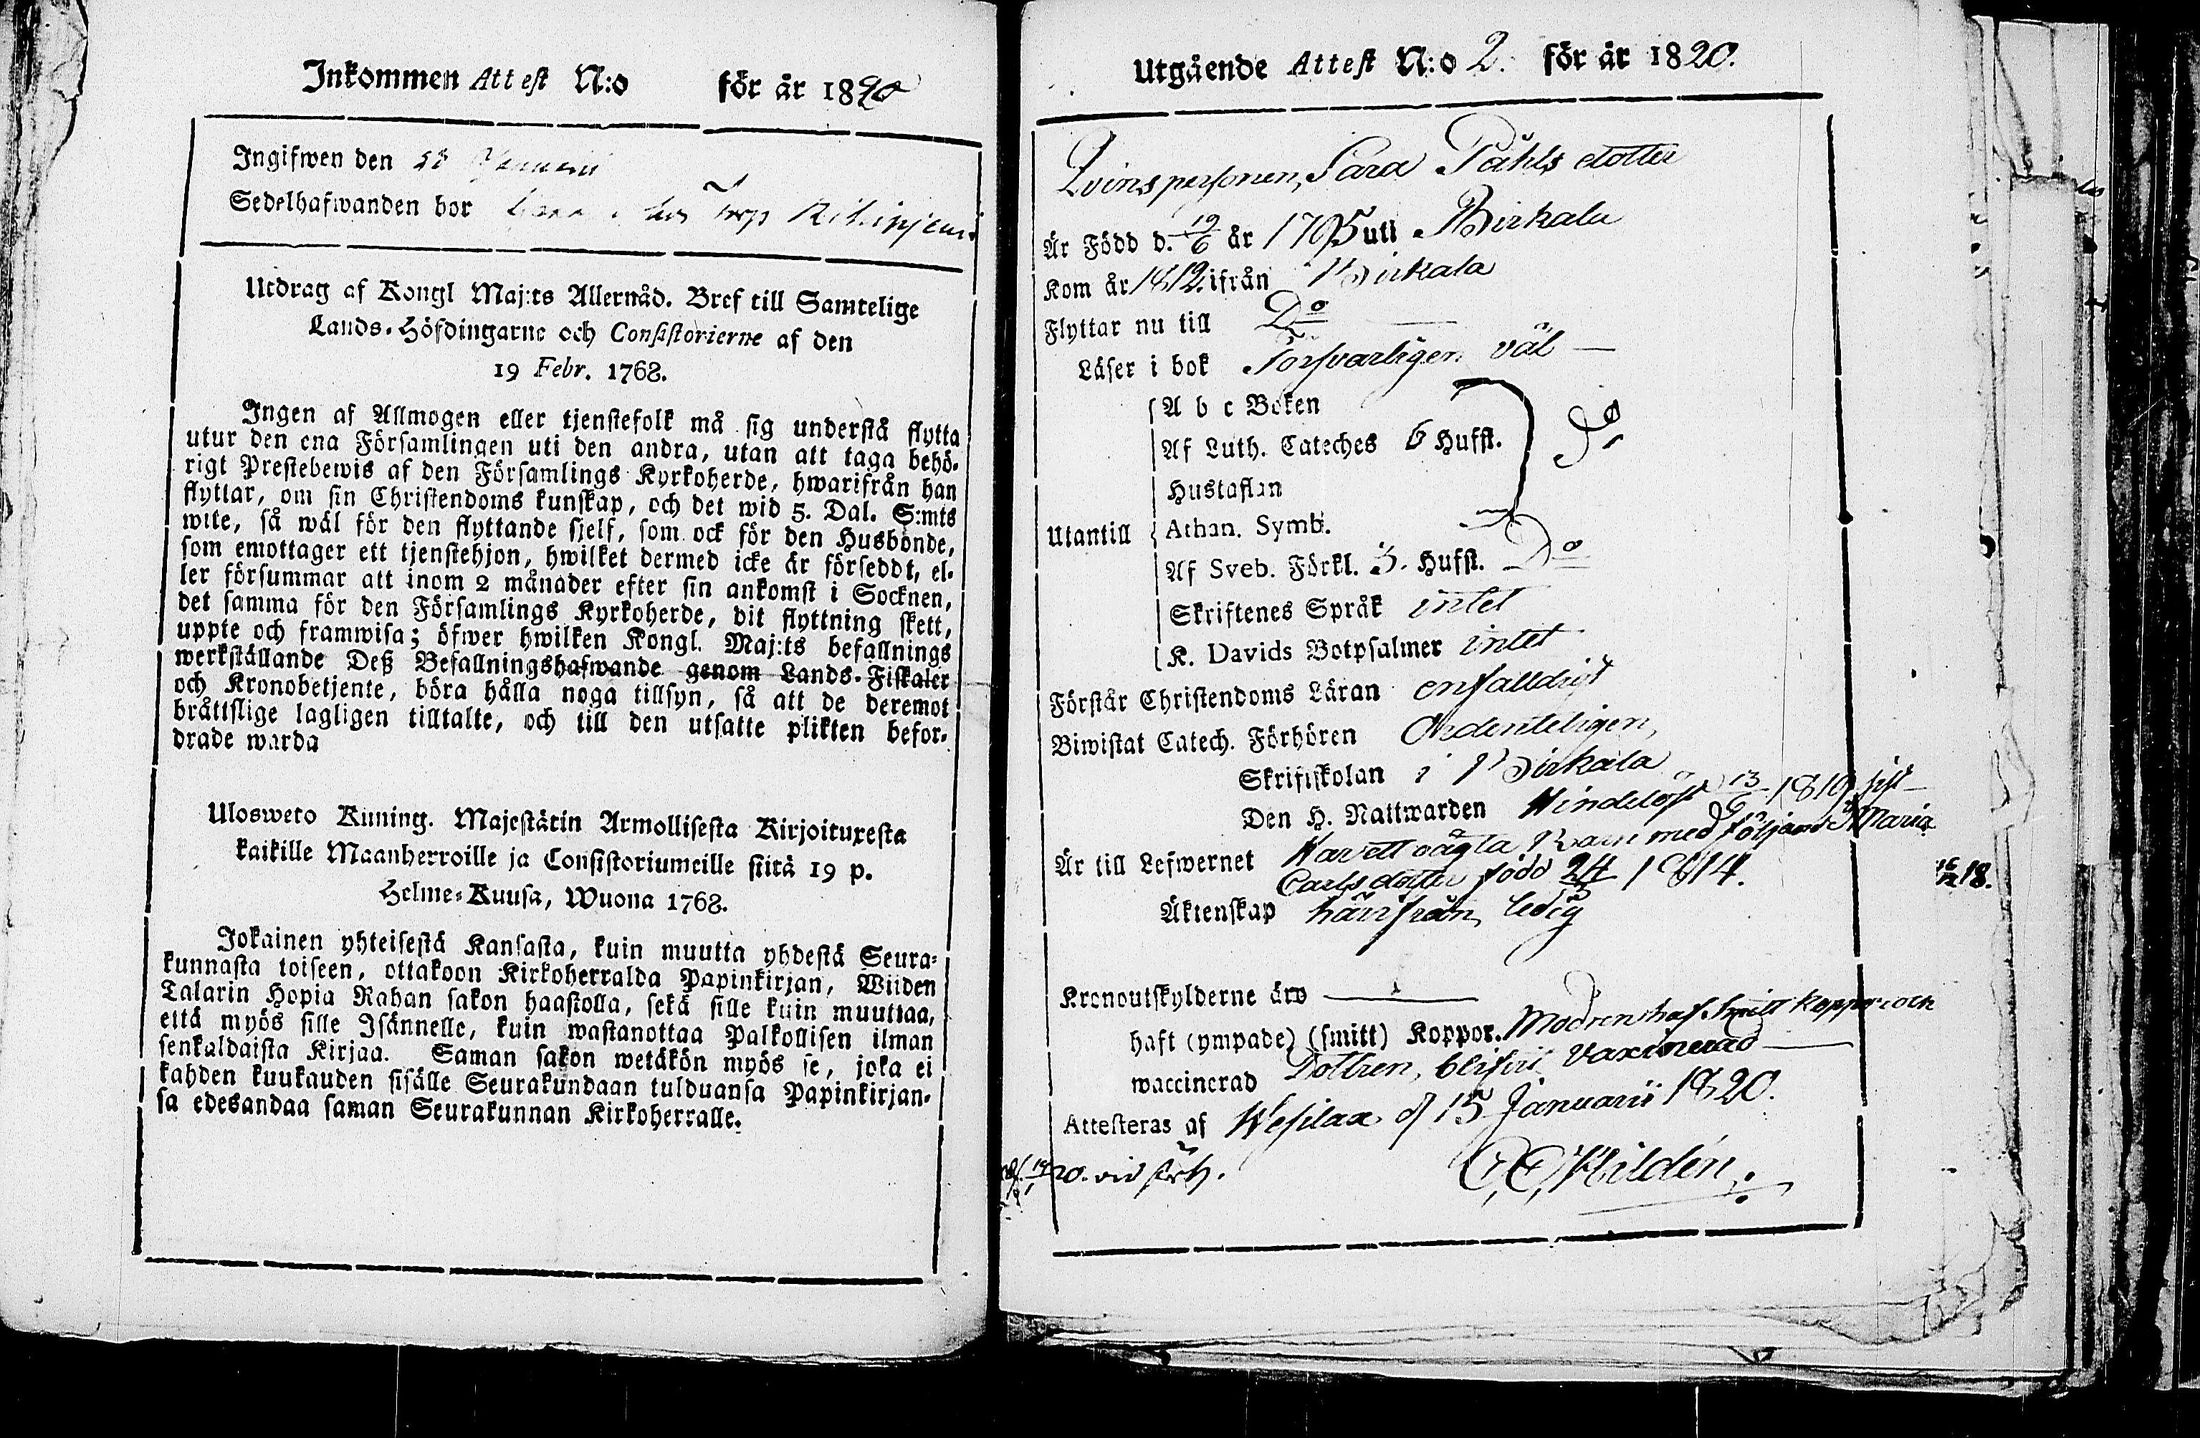 Inkommen Attest N:o för år 1820
Ingifwen den 28 Januarii
Sedelhafwanden bor
Utdrag af Kongl Maj:ts Allernåd. Bref till Samtelige
Lands-Höfdingarne och Consistorierne af den
19 Febr. 1768.
Ingen af Allmogen eller tjenstefolk må sig understå flytta
utur den ena Församlingen uti den andra, utan att taga behö-
rigt Prestebewis af den Församlings Kyrkoherde, hwarifrån han
flyttar, om sin Christendoms kunskap, och det wid 5. Dal. S:mts
wite, så wäl för den flyttande sjelf, som ock för den Husbonde,
som emottager ett tjenstehjon, hwilket dermed icke är försedt, el-
ler försummar att inom 2 månader efter sin ankomst i Socknen,
det samma för den Församlings Kyrkoherde, dit flyttning skett,
uppte och framwisa; öfwer hwilken Kongl. Maj:ts befallnings
werkställande Deß Befallningshafwande genom Lands-Fiskaler
och Kronobetjente, böra hålla noga tillsyn, så att de deremot
bråttslige lagligen tilltalte, och till den utsatte plikten befor-
drade warda
Ulosweto Kuning. Majestätin Armollisesta Kirjoituxesta
kaikille Maanherroille ja Consistoriumeille siitä 19 p.
Helme-Kuusa, Wuona 1768.
Jokainen yhteisestä Kansasta, kuin muutta yhdestä Seura-
kunnasta toiseen, ottakoon Kirkoherralda Papinkirjan, Wiiden
Talarin Hopia Rahan sakon haastolla, sekä sille kuin muuttaa,
että myös sille Isännelle, kuin wastanottaa Palkollisen ilman
senkaldaista Kirjaa. Saman sakon wetäkön myös se, joka ei
kahden kuukauden sisälle Seurakundaan tulduansa Papinkirjan-
sa edesandaa saman Seurakunnan Kirkoherralle.
Utgående Attest N:o 2. för år 1820.
Qvinspersonen, Sara Påhls dotter
Är Född d. 19/6 år 1795 uti Birkala
Kom år 1812. ifrån Birkala
Flyttar nu till Do
Läser i bok Försvarligen väl
A b c Boken
Af Luth. Cateches 6 Hufst. Do
Hustaflan
Utantill Athan. Symb.
Af Sveb. Förkl. 3. Hufst. Do
Skriftenes Språk intet
K. Davids Botpsalmer intet
Förstår Christendoms Läran enfalldigt
Biwistat Catech. Förhören Ordenteligen,
Skriftskolan i Birkala
Den H. Nattwarden 1819 sist
Är till Lefwernet Har ett oägta Barn med följande Maria
Carls dotter född 24/5 1814.
16/12 18.
Äktenskap härifrån ledig
Kronoutskylderne äro
haft (ympade) (smitt) Koppor. Modren haf. Smitt koppor och
waccinerad Dottren, blifvit Vaxinerad
Attesteras af Wesilax d 15 Januarii 1820.
C, C, Hildén.